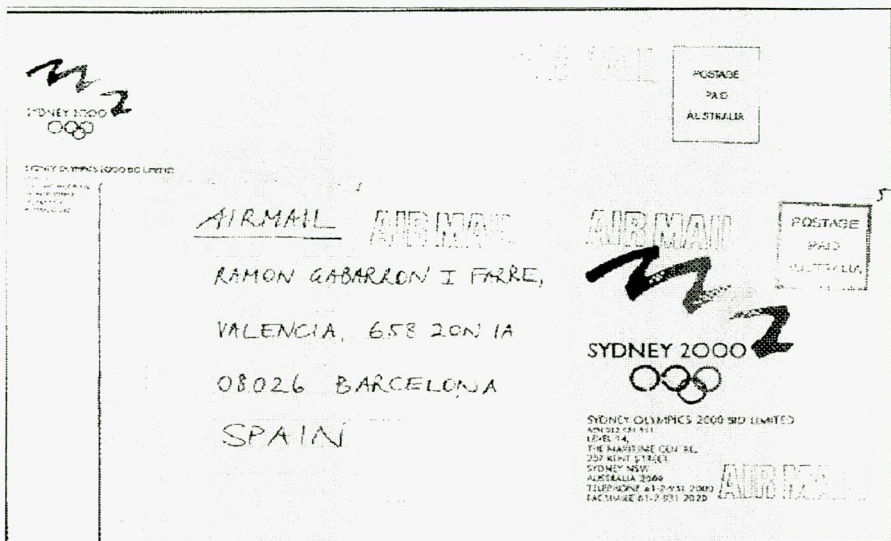 AIR MAIL
POSTAGE
PAID
AUSTRALIA
SYDNEY 2000
SYDNEY OLYMPICS 2000 BID LIMITED
AIRMAIL
AIR MAIL
AIR MAIL
POSTAGE
PAID
AUSTRALIA
RAMON GABARRON I FARRE,
VALENCIA, 658 2ON 1A
08026 BARCELONA
SPAIN
SYDNEY 2000
SYDNEY OLYMPICS 2000 BID LIMITED
LEVEL 14,
THE MARITIME CENTRE,
207 KENT STREET
SYDNEY NSW
AUSTRALIA 2000
TELEPHONE 61-2-931 2000
FACSIMILE 61-2-931 2020
AIR MAIL